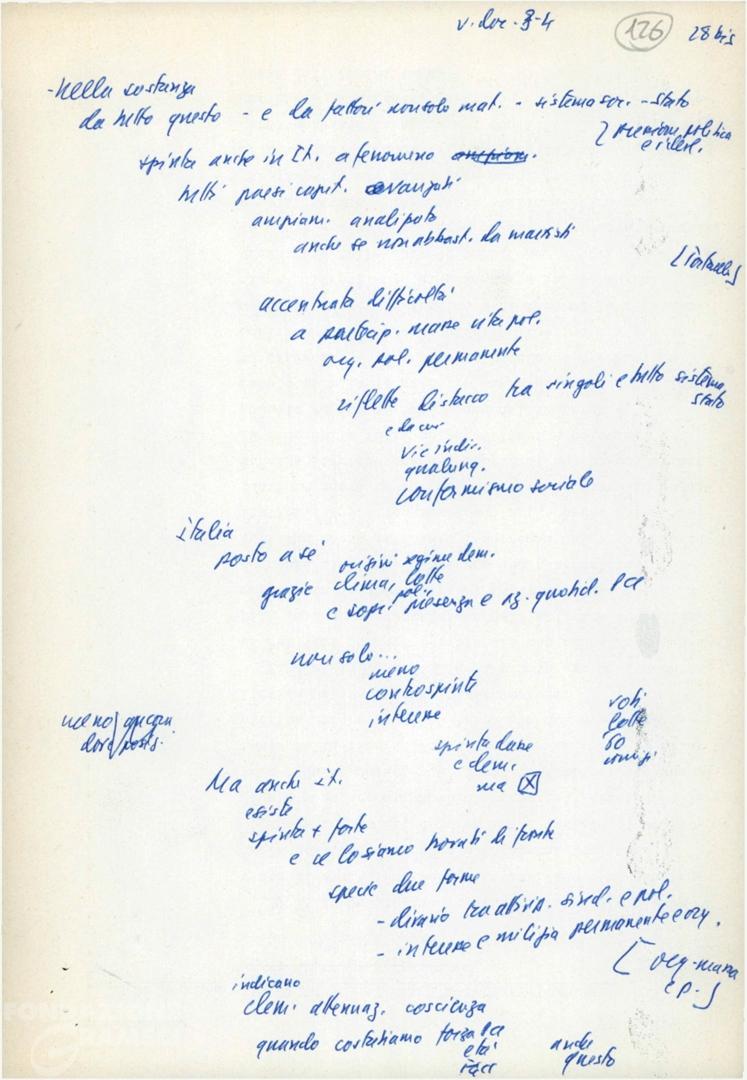 v. doc. 3-4
126
28 bis
- nella sostanza
da tutto questo - e da fattori non solo mat. - sistema soc. - stato
[ pressione politica
e ideol.
spinta anche in It. a fenomeno
tutti paesi capit. avanzati
ampiam. analizzato
anche se non abbast. da marxisti
[Tortorella]
accentuata difficoltà
a partecip. masse vita pol.
org. pol. permanente
riflette distacco tra singoli e tutto sistema
stato
e da cui
vie indiv.
qualunq.
conformismo sociale
italia
posto a sé
origini regime dem.
grazie clima, lotte
pol.
e sopr. presenza e az. quotid. PCI
non solo...
meno
controspinte
intense
meno ancora
dove posiz.
spinta dare
e dem.
ma [X]
voti
lotte
60
Ma anche it.
esiste
spinta + forte
e ce lo siamo trovati di fronte
specie due forme
- divario tra attivis. sind. e pol.
- intense e milizia permanente e org.
[ org. massa
e p. ]
indicano
elem. attenuaz. coscienza
quando costatiamo forza PCI
età
anche
questo
FONDAZIONE